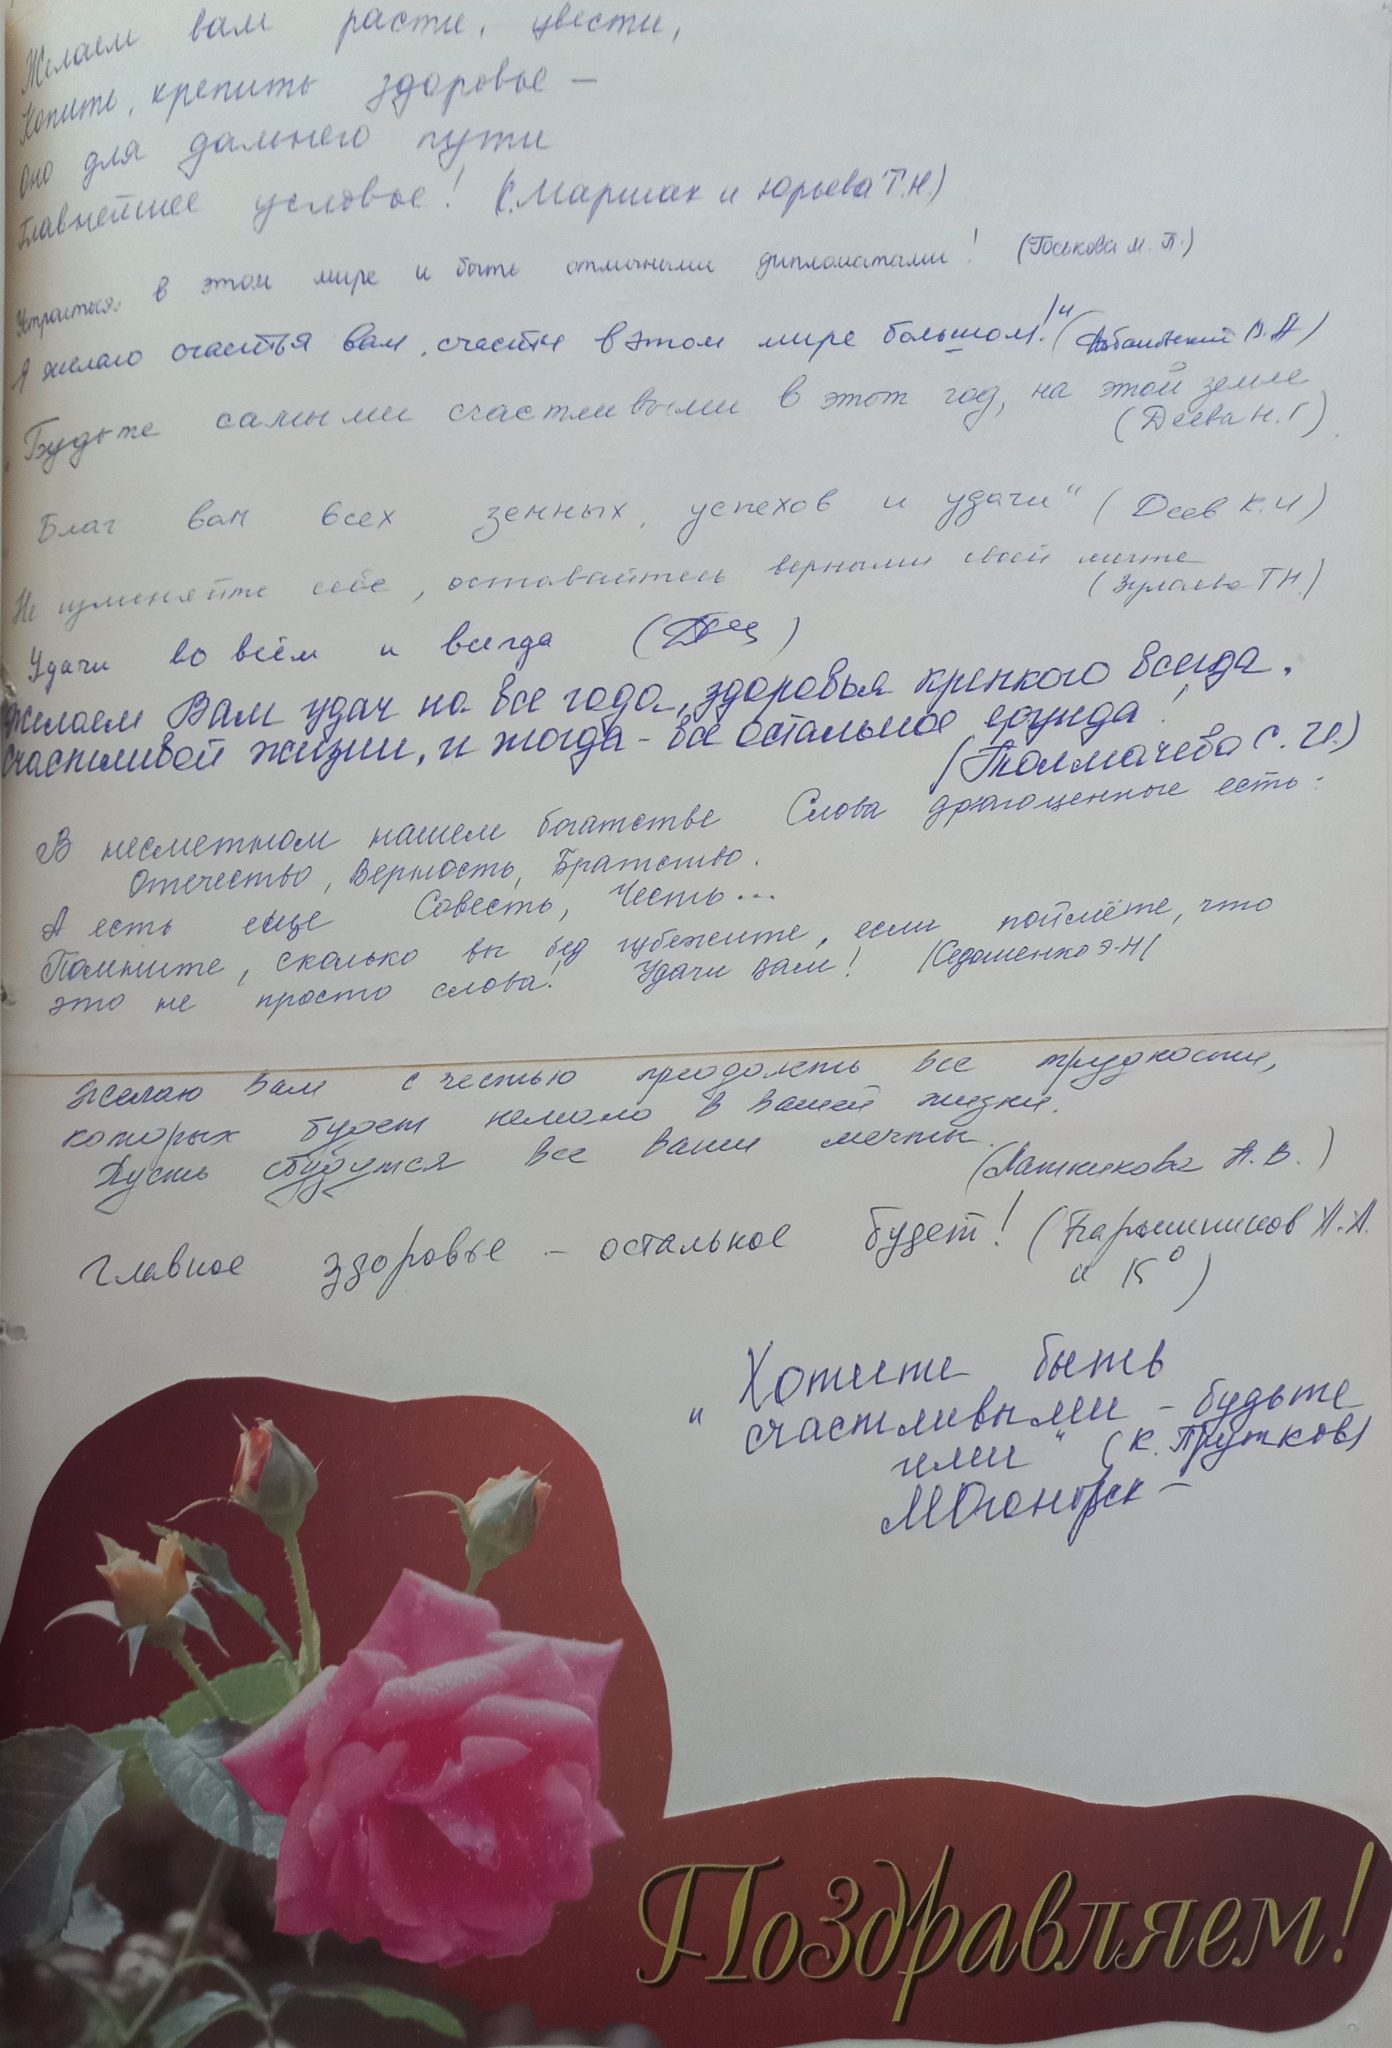 Желаем вам расти, цвести,
Копить, крепить здоровье –
Оно для дальнего пути
Главнейшее условье! (С. Маршак и Юрьева Т.Н.)
в этом мире и быть отличными дипломатами! (Госькова М. П.)
Я желаю счастья вам, счастья в этом мире большом!" (В. А)
Будьте самыми счастливыми в этот год, на этой земле
(Деева Н. Г)
Благ вам всех земных, успехов и удачи" (Деев К. И)
Не изменяйте себе, оставайтесь верными своей мечте
(Т Н.)
Удачи во всём и всегда
Желаем Вам удач на все года, здоровья крепкого всегда.
Счастливой жизни, и тогда – всё остальное ерунда!
(Толмачева С. И.)
В несметном нашем богатстве Слова драгоценные есть:
Отечество, Верность, Братство.
А есть еще Совесть, Честь...
Помните, сколько вы бед избежите, если поймёте, что
это не просто слова! Удачи вам! (Седашенко Э-Н)
Желаю Вам с честью преодолеть все трудности,
которых будет немало в Вашей жизни.
Пусть сбудутся все Ваши мечты.
(А. В.)
Главное здоровье – остальное будет! (Барышников А. А.
и К°)
"Хотите быть
счастливыми – будьте
ими" (К. Прутков)
Поздравляем!